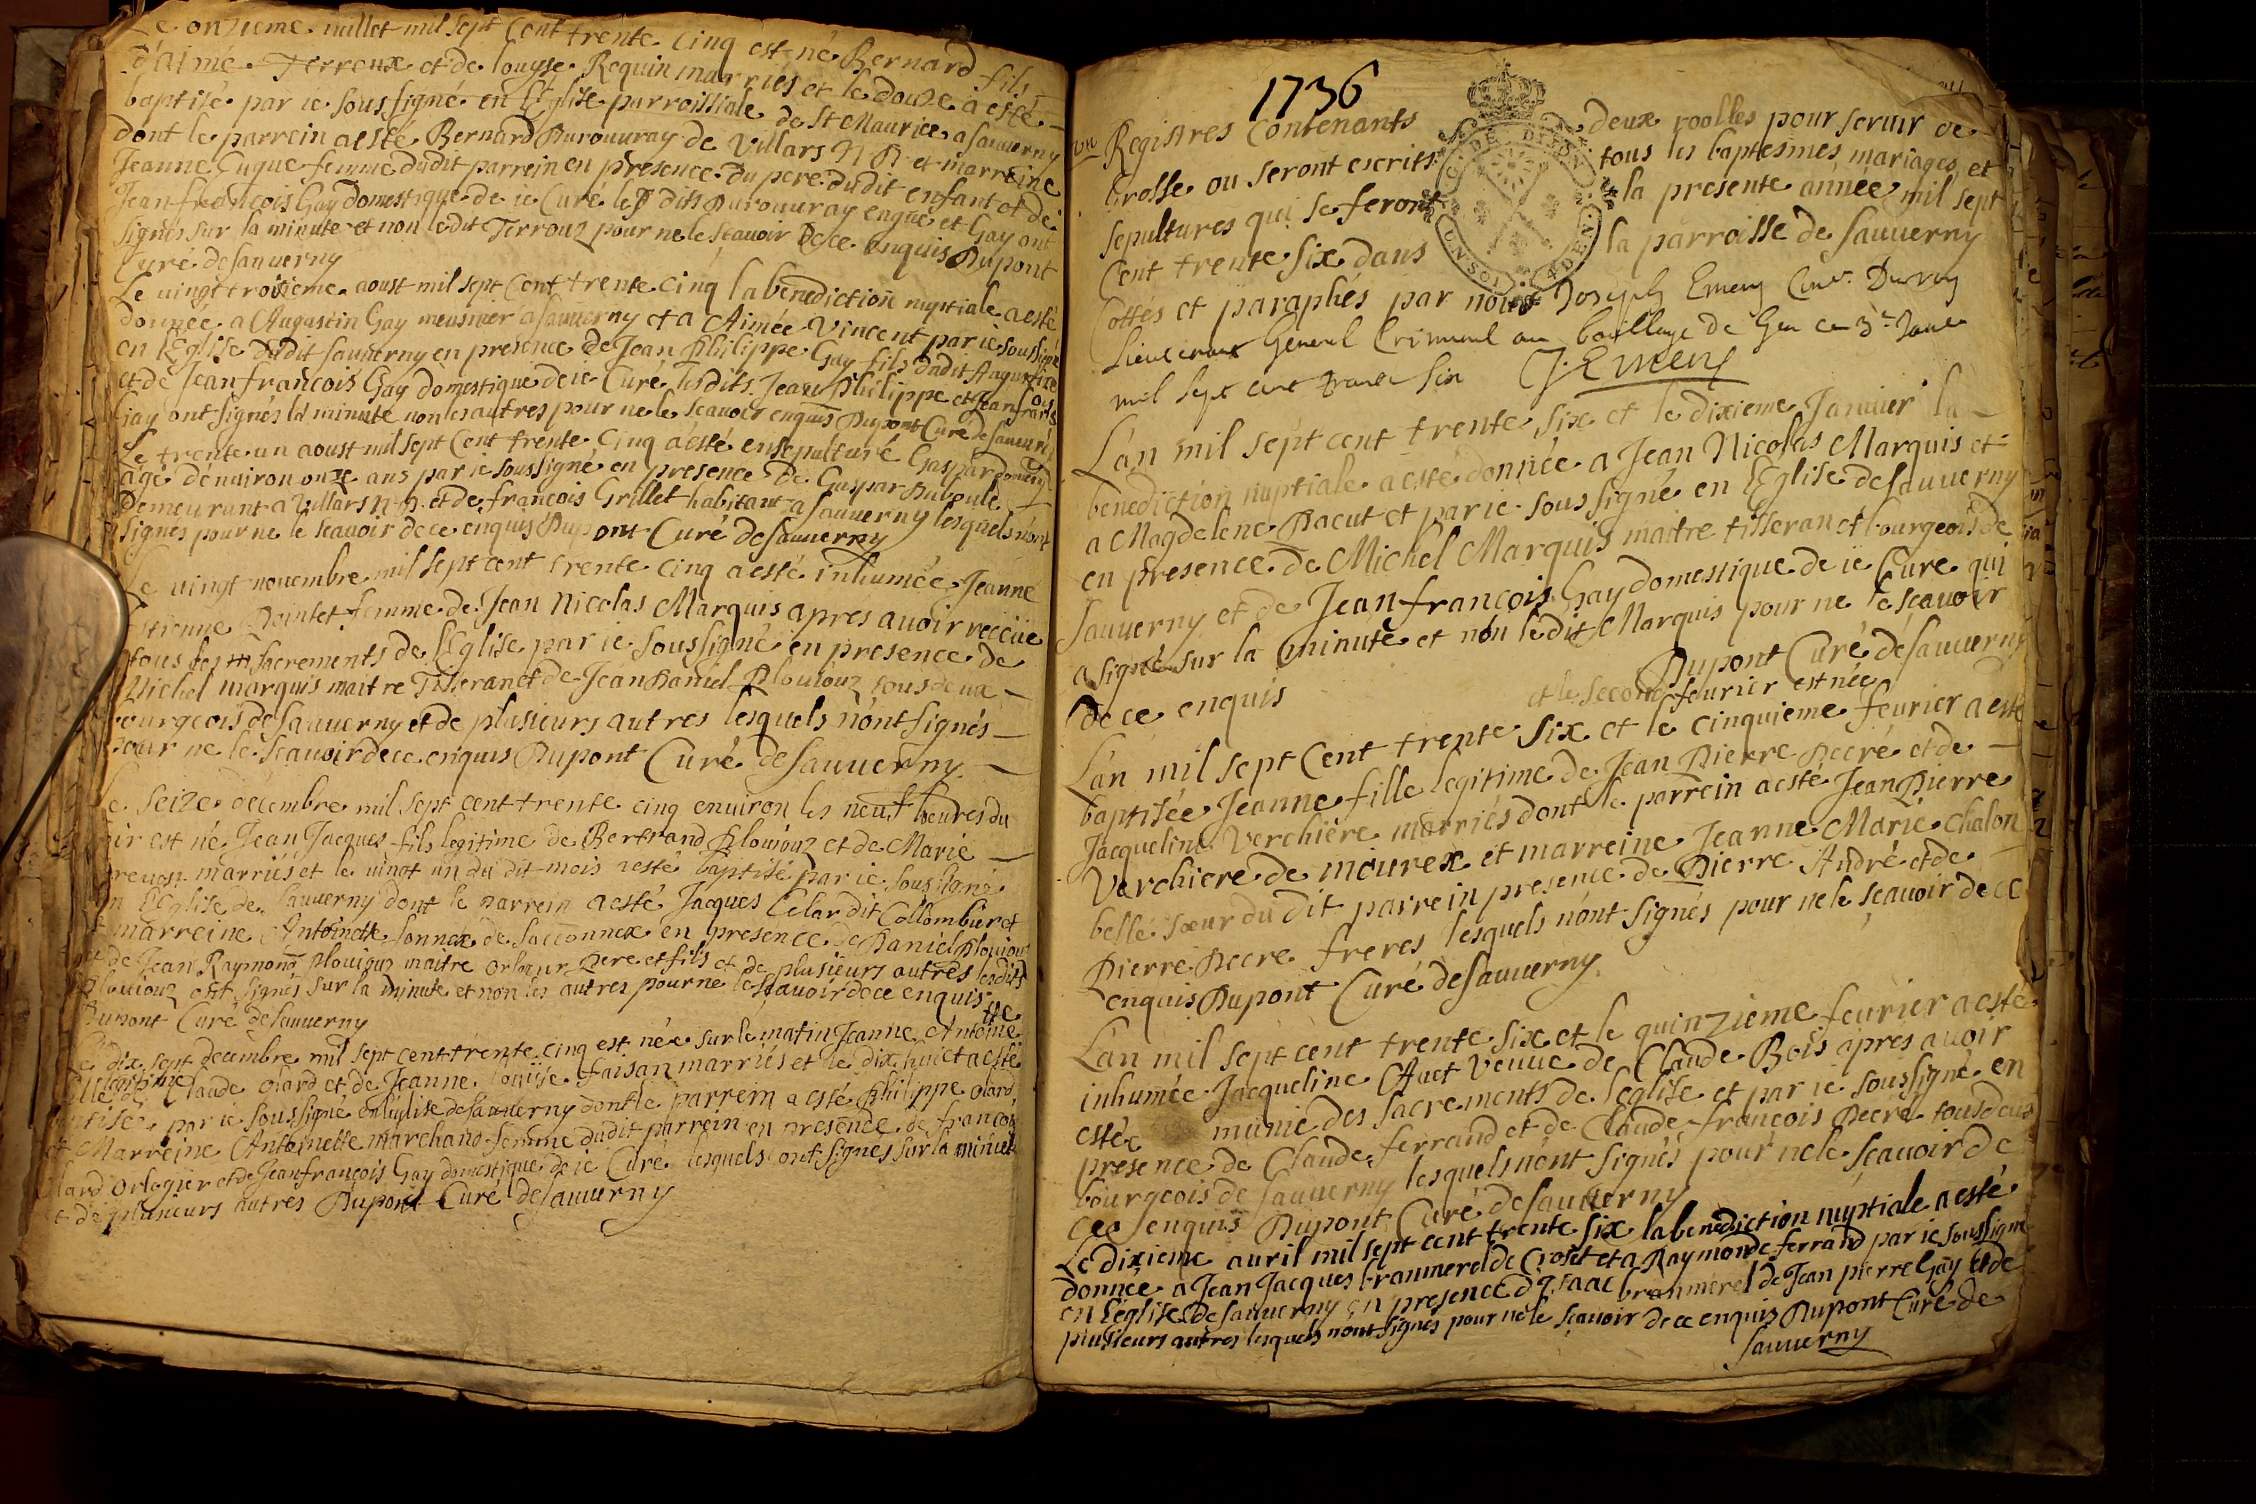 Le onzieme iuillet mil sept Cent trente Cinq est né Bernard fils
d'aimé Terroux et de louyse Requin marriés et le douze a esté
baptisé par ie sous signé en l'Eglise parroissiale de St Maurice a sauuerny
dont le parrein a esté Bernard Durouuray de Villars et marreine
Jeanne femme dudit parrein en presence du pere dudit enfant et de
Jean françois Gay domestique de ie Curé les dits Durouuray et Gay ont
signés sur la minute et non ledit Terroux pour ne le sçauoir de ce enquis Dupont
Curé de sauuerny
Le uingt troisieme aoust mil sept Cent trente Cinq la benediction nuptiale a esté
donnée a Augustin Gay meusnier a sauuerny et a Aimée Vincent par ie soussigné
en l'Eglise dudit sauuerny en presence de Jean Philippe Gay fils dudit Augustin
et de Jean françois Gay domestique de ie Curé lesdits Jean Philippe et Jean frans
Gay ont signés la minute non les autres pour ne le sçauoir enquis Dupont Curé de sauuerny
Le trente un aoust mil sept Cent trente Cinq a esté ensepulturé Gaspar
agé d'enuiron onze ans par ie sous signé en presence de Gaspar Dupule
Demeurant a Villars et de françois Grillet habitant a sauuerny lesquels n'ont
signés pour ne le sçauoir de ce enquis Dupont Curé de sauuerny
Le uingt nouembre mil sept cent trente cinq a esté inhumée Jeanne
Estienne Pointet femme de Jean Nicolas Marquis apres auoir receüe
tous les sacrements de l'Eglise par ie sous signé en presence de
Michel marquis maitre Tisseran et de Jean Daniel Plouiouz tous deux
bourgeois de sauuerny et de plusieurs autres lesquels n'ont signés
pour ne le sçauoir de ce enquis Dupont Curé de sauuerny
Le seize décembre mil sept cent trente cinq enuiron les neuf heures du
soir est né Jean Jacques fils legitime de Bertrand Plouiouz et de Marie
marriés et le uingt un du dit mois a esté baptisé par ie sous signé
en l'Eglise de sauuerny dont le parrein a esté Jacques Celar dit Collombier et
marreine Antoinette sonnex de sacconnex en presence de Daniel Plouiouz
et de Jean Raymond plouiouz maitre orloeur pere et fils et de plusieurs autres lesdits
Plouiouz ont signés sur la minute et non les autres pour ne le sçauoir de ce enquis
Dupont Curé de sauuerny
Le dix sept decembre mil sept cent trente cinq est née sur le matin Jeanne Antoinette
fille legitime de Claude olard et de Jeanne louïse faisan marriés et le dix huict a esté
baptisée par ie sous signé en l'Eglise de sauuerny dont le parrein a esté Philippe olard
et Marreine Antoinette marchand femme dudit parrein en presence de françois
olard Orlogier et de Jean françois Gay domestique de ie Curé lesquels ont signés sur la minute
et de plusieurs autres Dupont Curé de sauuerny
1736
un
Registres Contenants deux roolles pour seruir de
Grosse ou seront escrits tous les baptesmes mariages et
sepultures qui se feront la presente année mil sept
Cent trente six dans la parroisse de sauuerny
Cottés et paraphés par nous Joseph Emery Duroy
Lieutenant General Criminel au bailliage de Gex ce 3e Janu
mil sept cent trente six J. Emery
L'an mil sept cent trente six et le dixieme Januier la
benediction nuptiale a esté donnée a Jean Nicolas Marquis et
a Magdelene Dacut et par ie sous signé en l'Eglise de sauuerny
en presence de Michel Marquis maitre tisseran et bourgeois de
sauuerny et de Jean françois Gay domestique de ie Curé qui
a signé sur la minute et non ledit Marquis pour ne le sçauoir
de ce enquis Dupont Curé de sauuerny
et le second feurier est née
L'an mil sept Cent trente six et le cinquieme feurier a esté
baptisée Jeanne fille legitime de Jean Pierre Decré et de
Jacqueline Verchière marriés dont le parrein a esté Jean Pierre
Verchiere de mourex et marreine Jeanne Marie chalon
belle soeur du dit parrein presence de Pierre André et de
Pierre Decre freres lesquels n'ont signés pour ne le sçauoir de ce
enquis Dupont Curé de sauuerny
L'an mil sept cent trente six et le quinzieme feurier a esté
inhumée Jacqueline Auet veuue de Claude Bois apres auoir
estée munie des sacrements de l'eglise et par ie soussigné en
presence de Claude ferrand et de Claude françois Decré tous deux
bourgeois de sauuerny lesquels n'ont signés pour ne le sçauoir de
cee enquis Dupont Curé de sauuerny
Le dixieme auril mil sept cent trente six la benediction nuptiale a esté
donnée a Jean Jacques branmerel de Croset et a Raymonde ferrand par ie soussigné
en l'église de sauuerny en presence d'Isaac branmerel de Jean pierre Gay et de
plusieurs autres lesquels n'ont signés pour ne le sçauoir de ce enquis Dupont Curé de
sauuerny